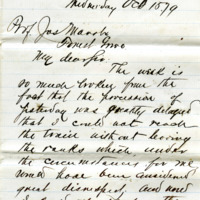 Wednesday Oct 1879
Prof Jas
Forest Grove
My dear sir
The week is
so much broken from the
fact that the procession of
yesterday was greatly delayed
that I could not reach
the train without leaving
the ranks which under
the circumstances for me
would have been considered
great disrespect, and now